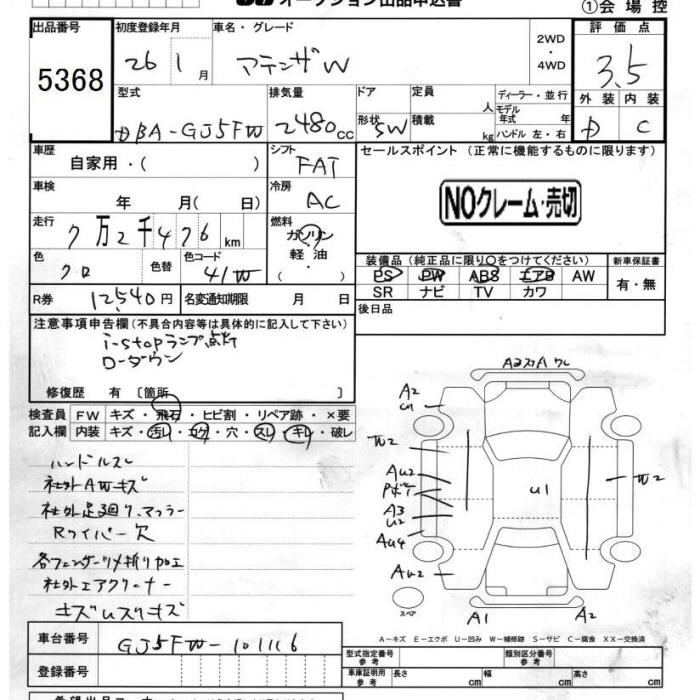 オークション出品申込書
①会場控
出品番号 5368
初度登録年月 26 1月
車名・グレード アテンザW
2WD・4WD
評価点 3.5
外装 D 内装 C
型式 DBA-GJ5FW
排気量 2480cc
ドア
形状 SW
定員 人
積載 kg
ディーラー・並行
モデル年式 年
ハンドル 左・右
車歴 自家用・( )
シフト FAT
セールスポイント (正常に機能するものに限ります)
NOクレーム・売切
車検 年 月( 日)
冷房 AC
走行 7万2千476km
燃料 ガソリン・軽油・( )
色 クロ 色替 色コード 41W
装備品(純正品に限り○をつけてください)
PS PW ABS エアB AW
SR ナビ TV カワ
新車保証書 有・無
R券 12,540円 名変通知期限 月 日
後日品
注意事項申告欄(不具合内容等は具体的に記入して下さい)
i-stopランプ点灯
ローダウン
修復歴 有〔箇所 〕
検査員記入欄 FW キズ・飛石・ヒビ割・リペア跡・×要
内装 キズ・汚レ・コゲ・穴・スレ・キレ・破レ
ハンドルスレ
社外AWキズ
社外足廻り、マフラー
Rワイパー欠
各フェンダーツメ折り加工
社外エアクリーナー
キズUスリキズ
A3スリA ワレ
A2
U1
W2
AU2
Pボケ
A3
U2
AU4
AU2
U1
W2
スペア
A1
A2
A-キズ E-エクボ U-凹み W-補修跡 S-サビ C-腐食 XX-交換済
車台番号 GJ5FW-101116
登録番号
型式指定番号 参考
類別区分番号 参考
車庫証明用 参考 長さ cm 幅 cm 高さ cm